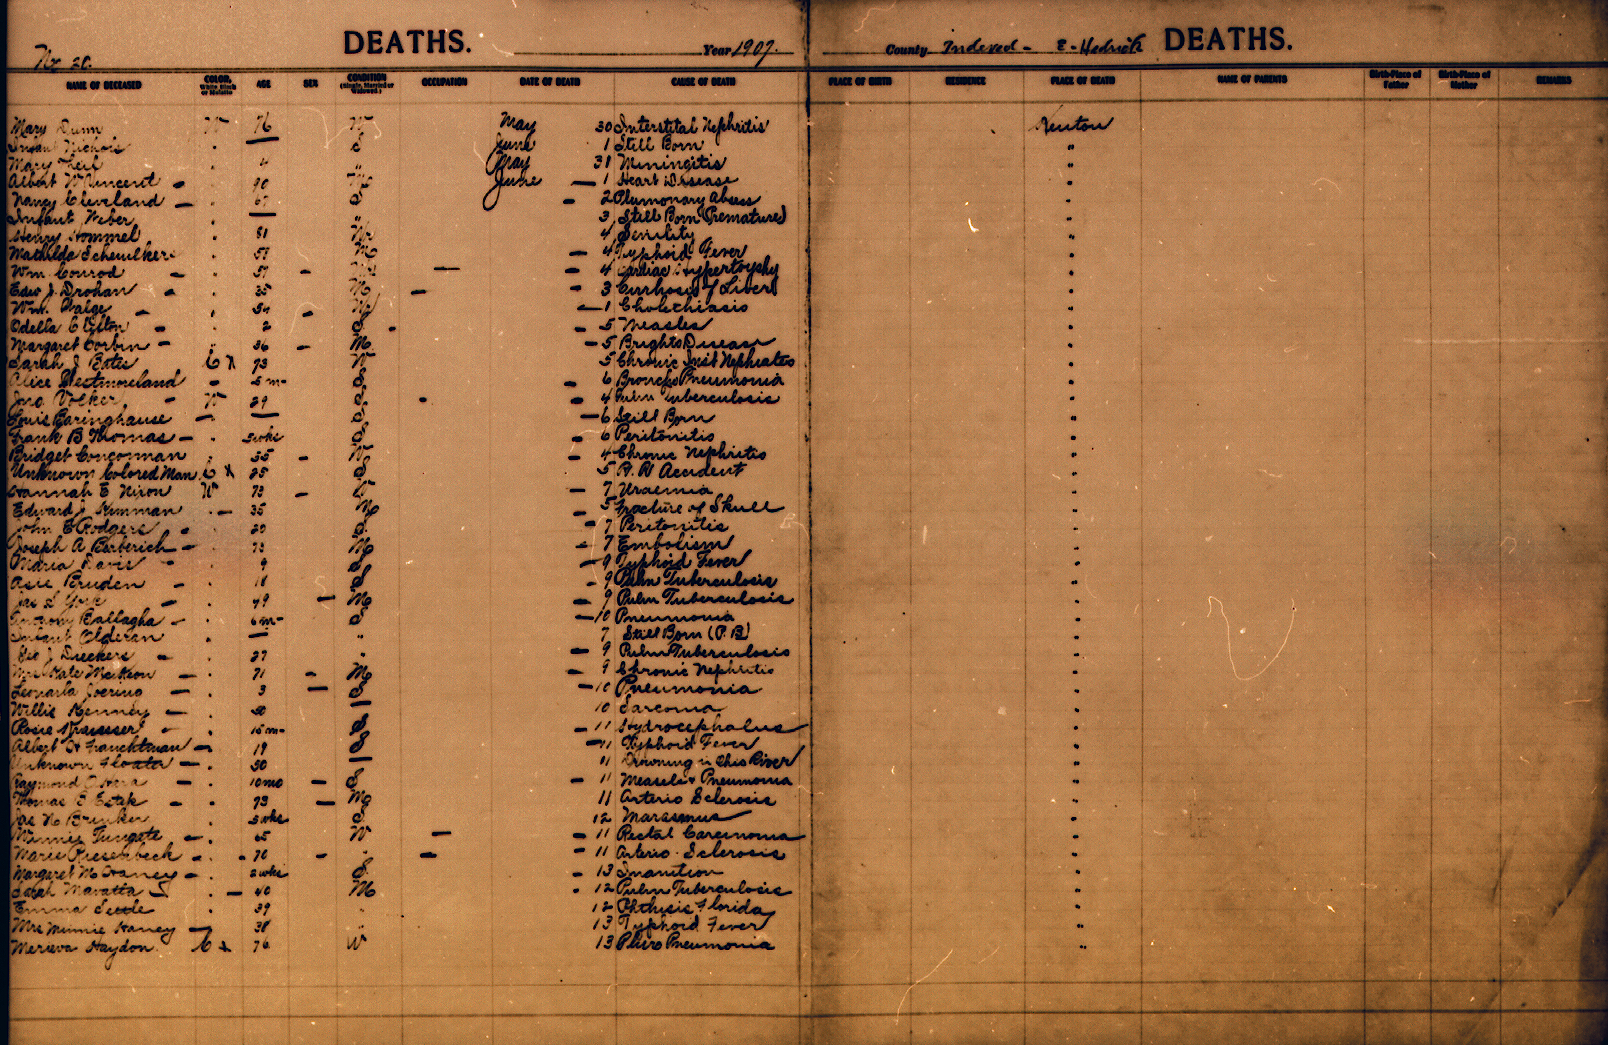 No 20.
DEATHS. Year 1907. County Indexed - E - Hedrick DEATHS.
NAME OF DECEASED COLOR, White, Black or Mulatto AGE SEX CONDITION (Single, Married or Widowed.) OCCUPATION DATE OF DEATH CAUSE OF DEATH PLACE OF BIRTH RESIDENCE PLACE OF DEATH NAME OF PARENTS Birth-Place of Father Birth-Place of Mother REMARKS
Mary Dunn W 76 W May 30 Interstital Nephritis Kenton
Infant Nichols — S June 1 Still Born "
Mary Theil 4 " May 31 Miningitis "
Albert W Vincent 90 June 1 Heart Disease "
Nancy Cleveland 67 S 2 Plumonary Abcess "
Infant Weber — " 3 Still Born (Premature) "
Henry Hommel 81 4 Senility "
Mathilda 57 M 4 Typhoid Fever "
Wm. Conrod 57 4 Cardiac Hypertrophy "
Edw J. Drohan 35 M 3 Cirrhosis of Liver "
Wm. 1 "
Odella Clifton 2 S 5 Measles "
Margaret Corbin 36 M 5 Brights Disease "
Sarah J Bates C X 73 W 5 Chronic Inst Nephrates "
Alice Westmoreland 5 m S 6 Broncho Pneumonia "
Jno. Volker W 29 S 4 Pulm Tuberculosis "
Louis Baringhause — S 6 Still Born "
Frank B Thomas 3 wks S 6 Peritonitis "
Bridget Conconnan 55 W 4 Chronic Nephritis "
Unknown Colored Man C X 25 S 5 R. R Accident "
Hannah E Nixon W 73 7 Uraemia "
Edward J 35 M 5 Fracture of Skull "
John E Rodgers 20 S 7 Peritonitis "
Joseph A Berberich 73 M 7 Embolism "
Maria Davis 9 S 9 Typhoid Fever "
Asie Bruden 18 S 9 Pulm Tuberculosis "
Jas S York 49 M 9 Pulm Tuberculosis "
Anthony Ballagha 6 m S 10 Pneumonia "
Infant Olderan — " 7 Still Born (P. B) "
Geo J. Duekers 27 " 9 Pulm Tuberculosis "
Mrs Kate McKeon 71 M 9 Chronic Nephritis "
3 S 10 Pneumonia "
Willie Kenney — 10 Sarcoma "
Rosie 15 m S 11 Hydrocephalus "
Albert 19 S 11 Typhoid Fever "
Unknown Floater 50 — 11 Drowning in Ohio River "
Raymond 10 mo S 11 Measels & Pneumonia "
Thomas E Estep 73 M 11 Arterio Sclerosis "
Jas N Brinker 3 wks S 12 Marasmus "
Minnie Tungate 65 W 11 Rectal Carcinoma "
Marie Riesenbeck 76 " 11 Arterio - Sclerosis "
Margaret 2 wks S 13 Inanition "
Maratta 40 M 12 Pulm Tuberculosis "
Emma Settle 39 " 12 Phthisis Florida "
Mrs Minnie Haney 38 " 13 Typhoid Fever "
Haydon C X 76 W 13 Pluro Pneumonia "